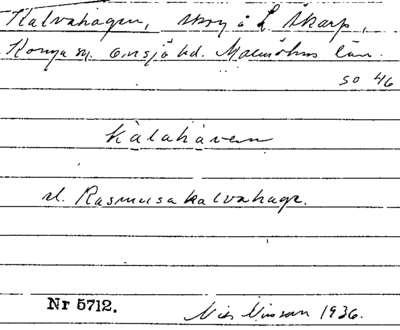 Kalvahagen, skog å L Skarp,
Konga sn. Onsjö hd. Malmöhus län.
SO 46
kalahaven
el. Rasmusa kalvhage.
Nr 5712.
Nils Nilsson 1936.